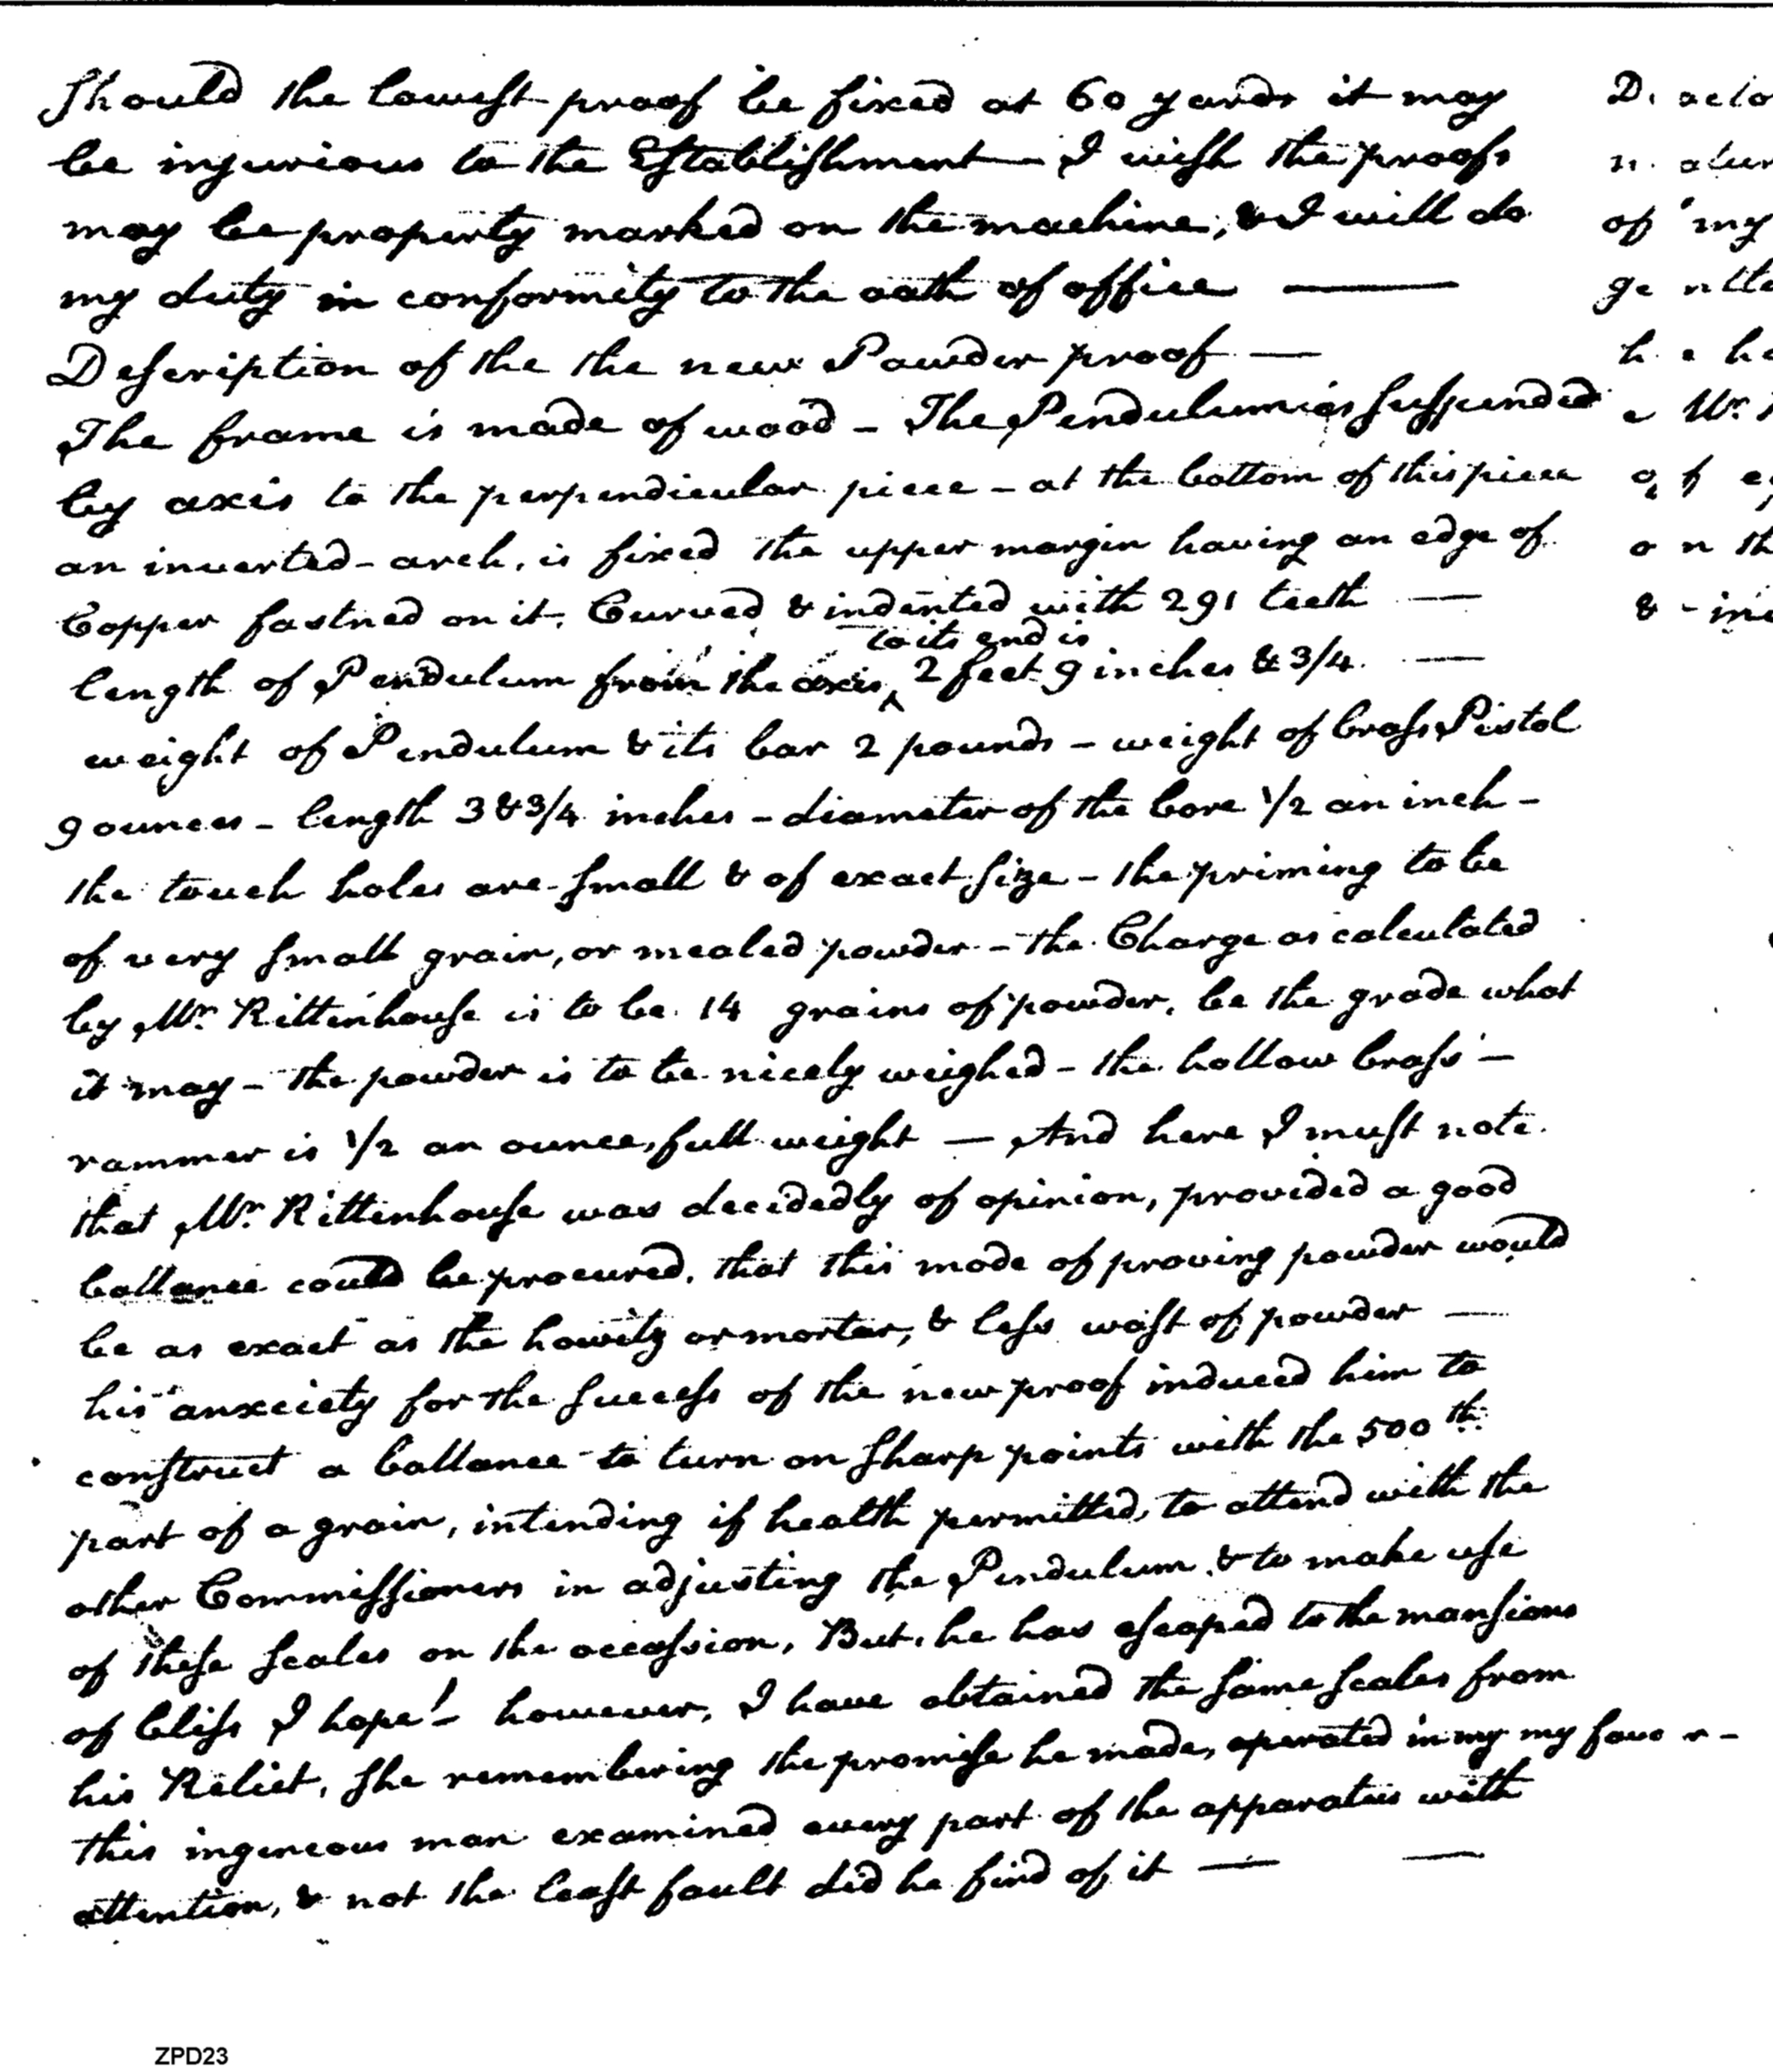 Should the lowest proof be fixed at 60 yards it may
be injurious to the Establishment — I wish the proofs
may be property marked on the machine, & I will do
my duty in conformity to the oath of office —
Description of the the new Powder proof —
The frame is made of wood – The Pendulum is suspended
by axis to the perpendicular piece – at the bottom of this piece
an inverted arch, is fixed the upper margin having an edge of
Copper fastned on it, Curved & indented with 291 teeth —
to its end is
length of Pendulum from the axis ‸ 2 feet 9 inches & 3/4. —
weight of Pendulum & its bar 2 pounds – weight of brass Pistol
9 ounces – length 3 & 3/4 inches – diameter of the bore 1/2 an inch –
the touch holes are small & of exact size – the priming to be
of very small grain, or mealed powder – the Charge as calculated
by Mr. Rittenhouse is to be 14 grains of powder, be the grade what
it may – the powder is to be nicely weighed – the hollow brass –
rammer is 1/2 an ounce, full weight — And here I must note
that Mr. Rittenhouse was decidedly of opinion, provided a good
ballance could be procured, that this mode of proving powder would
be as exact as the howitz or mortar, & less wast of powder —
his anxciety for the success of the new proof induced him to
construct a ballance to turn on sharp points with the 500th
part of a grain, intending if health permitted, to attend with the
other Commissioners in adjusting the Pendulum, & to make use
of these scales on the occassion, But, he has escaped to the mansions
of bliss I hope! – however, I have obtained the same scales from
his Relict, she remembering the promise he made, operated in my my favor –
this ingeneous man examined every part of the apparatus with
attention, & not the least fault did he find of it — —
D. acto
n. atur
of my
ge ntle
h e he
e Mr.
of
on th
& – ine
ZPD23